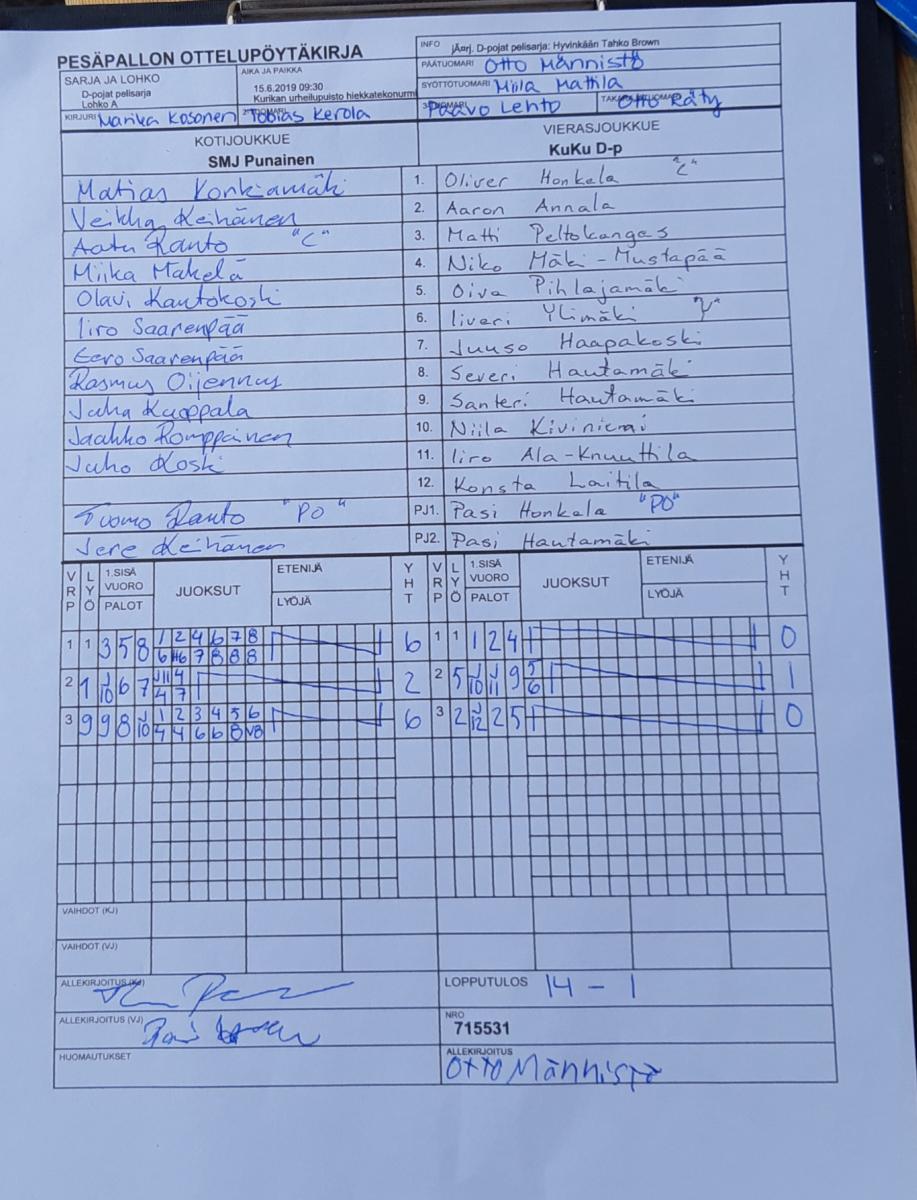 PESÄPALLON OTTELUPÖYTÄKIRJA
INFO jÄärj. D-pojat pelisarja: Hyvinkään Tahko Brown
SARJA JA LOHKO
D-pojat pelisarja
Lohko A
AIKA JA PAIKKA
15.6.2019 09:30
Kurikan urheilupuisto hiekkatekonurmi
PÄÄTUOMARI Otto Männistö
SYÖTTÖTUOMARI Miila Mattila
KIRJURI Marika Kosonen
Tobias Kerola
Paavo Lehto
Otto Räty
KOTIJOUKKUE
SMJ Punainen
VIERASJOUKKUE
KuKu D-p
Matias Konkiamäki 1. Oliver Honkela "C"
Veikka Keihänen 2. Aaron Annala
Aatu Ranto "C" 3. Matti Peltokangas
Miika Mäkelä 4. Niko Mäki-Mustapää
Olavi Kautokoski 5. Oiva Pihlajamäki
Iiro Saarenpää 6. Iiveri Ylimäki
Eero Saarenpää 7. Juuso Haapakoski
Rasmus Oijennus 8. Severi Hautamäki
Juha Kuoppala 9. Santeri Hautamäki
Jaakko Romppainen 10. Niila Kiviniemi
Juho Koski 11. Iiro Ala-Knuuttila
12. Konsta Laitila
Tuomo Ranto "PO" PJ1. Pasi Honkela "PO"
Jere Keihänen PJ2. Pasi Hautamäki
VRP LYÖ 1.SISÄ VUORO PALOT JUOKSUT ETENIJÄ LYÖJÄ YHT VRP LYÖ 1.SISÄ VUORO PALOT JUOKSUT ETENIJÄ LYÖJÄ YHT
1 1 3 5 8 1 2 4 6 7 8 6 1 1 1 2 4 0
7 8 8 8
2 1 J10 6 7 2 2 5 J10 J11 9 5 1
4 7 6
3 9 9 8 J10 1 2 3 4 5 6 6 3 2 J12 2 5 0
4 4 6 6 8 V8
VAIHDOT (KJ)
VAIHDOT (VJ)
ALLEKIRJOITUS (KJ)
LOPPUTULOS 14 - 1
ALLEKIRJOITUS (VJ)
NRO
715531
HUOMAUTUKSET
ALLEKIRJOITUS
Otto Männistö